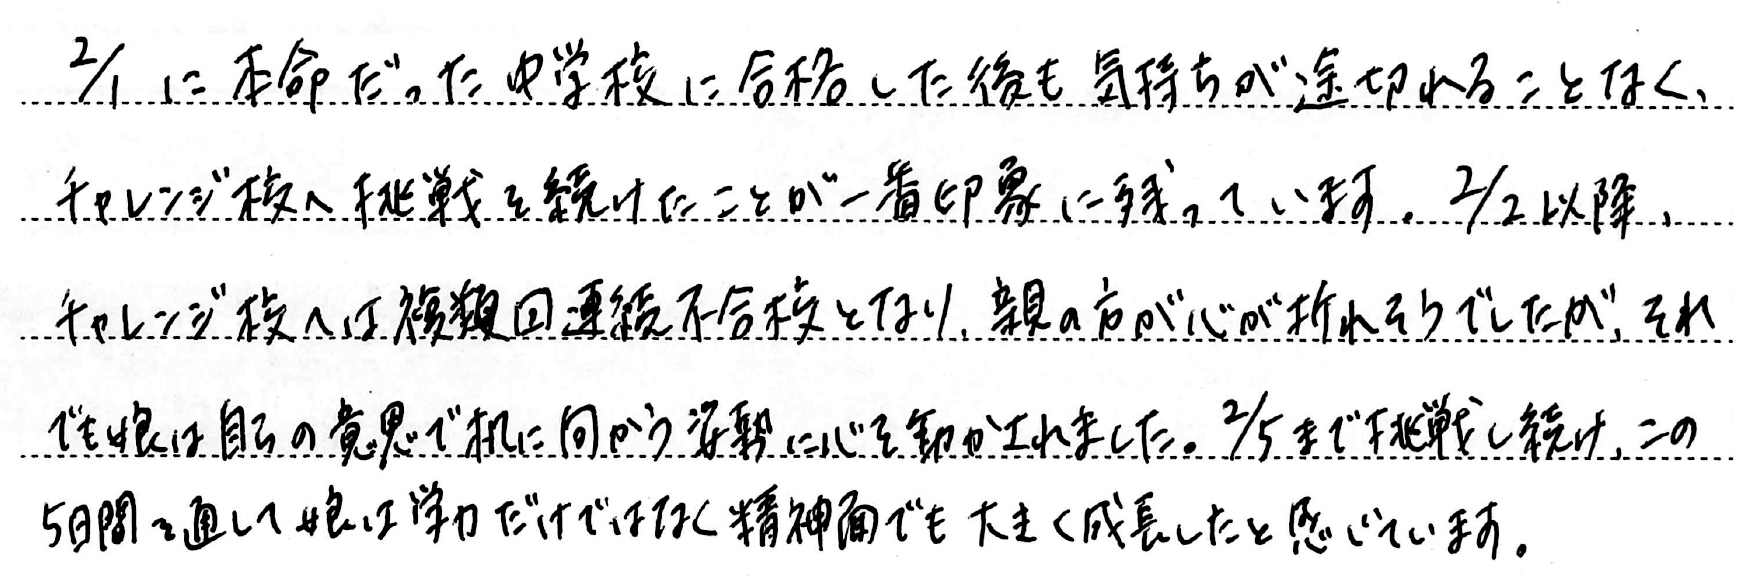 2/1 に本命だった中学校に合格した後も気持ちが途切れることなく、
チャレンジ校へ挑戦を続けたことが一番印象に残っています。2/2以降、
チャレンジ校へは複数回連続不合格となり、親の方が心が折れそうでしたが、それ
でも娘は自らの意思で机に向かう姿勢に心を動かされました。2/5まで挑戦し続け、この
5日間を通して娘は学力だけではなく精神面でも大きく成長したと感じています。